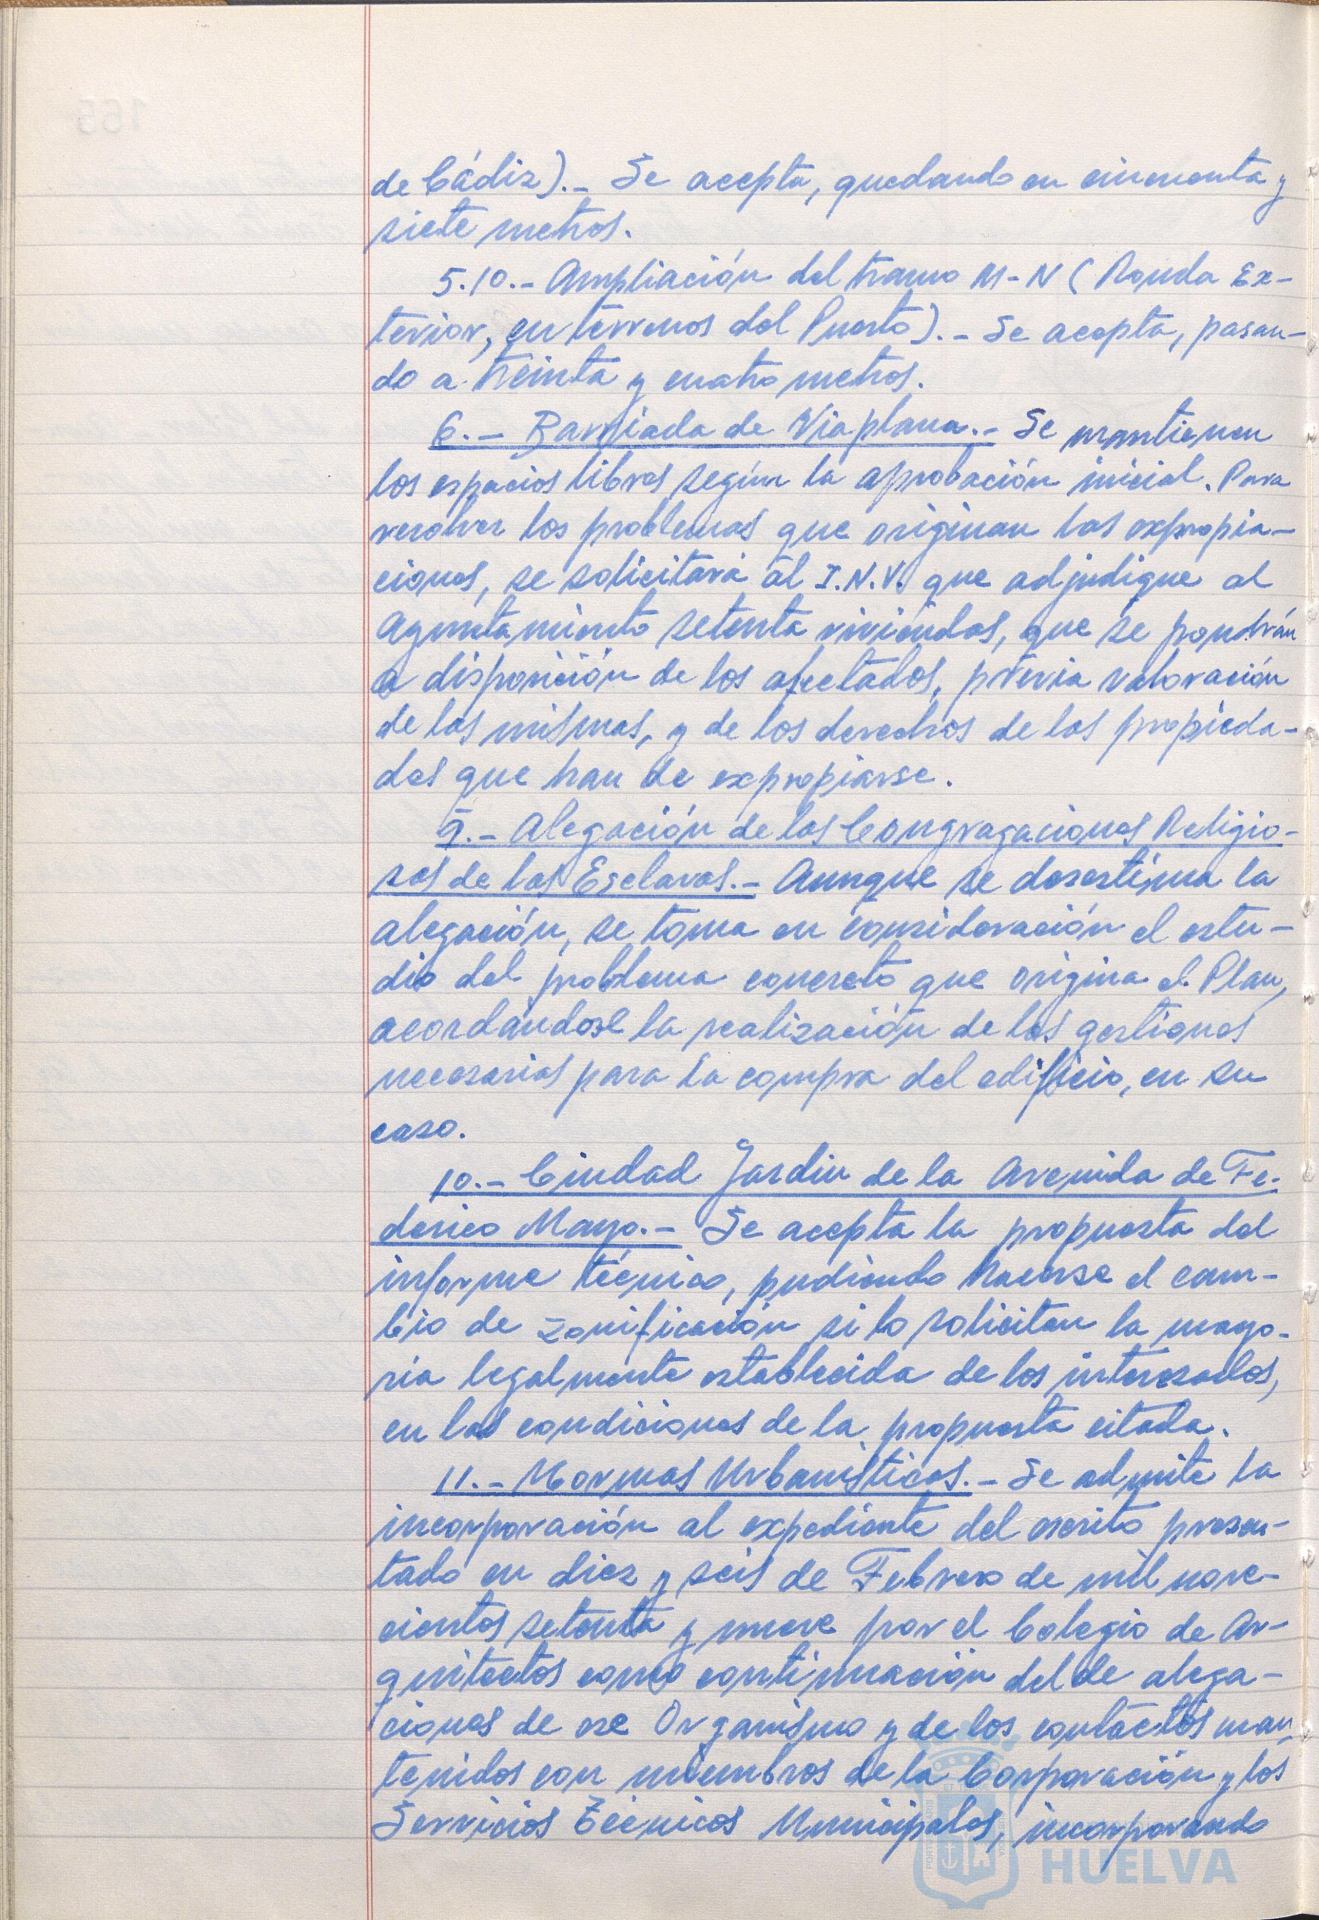 de Cádiz).- Se acepta, quedando en cincuenta y
siete metros.
5.10.- Ampliación del tramo M-N (Ronda Ex-
terior, en terrenos del Puerto).- Se acepta, pasan-
do a treinta y cuatro metros.
6.- Barriada de Viaplana.- Se mantienen
los espacios libres según la aprobación inicial. Para
resolver los problemas que originan las expropia-
ciones, se solicitará al I.N.V. que adjudique al
Ayuntamiento setenta viviendas, que se pondrán
a disposición de los afectados, previa valoración
de las mismas, y de los derechos de las propieda-
des que han de expropiarse.
9.- Alegación de las Congragaciones Religio-
sas de las Esclavas.- Aunque se desestima la
alegación, se toma en consideración el estu-
dio del problema concreto que origina el Plan,
acordándose la realización de las gestiones
necesarias para la compra del edificio, en su
caso.
10.- Ciudad Jardin de la Avenida de Fe-
derico Mayo.- Se acepta la propuesta del
informe técnico, pudiendo hacerse el cam-
bio de zonificación si lo solicitan la mayo-
ria legalmente establecida de los interesados,
en las condiciones de la propuesta citada.
11.- Normas Urbanísticas.- Se admite la
incorporación al expediente del escrito presen-
tado en diez y seis de Febrero de mil nove-
cientos setenta y nueve por el Colegio de Ar-
quitectos como continuación del de alega-
ciones de ese Organismo y de los contactos man-
tenidos con miembros de la Corporación y los
Servicios Técnicos Municipales, incorporando
HUELVA